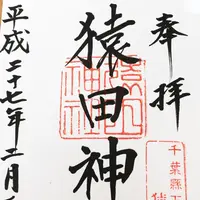 奉拝
猿田神
平成二十七年二月
千葉縣